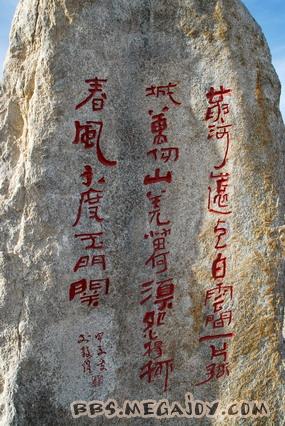 黃河遠上白雲間一片孤
城萬仞山羌笛何須怨楊柳
春風不度玉門關
BBS.MEGAJOY.COM